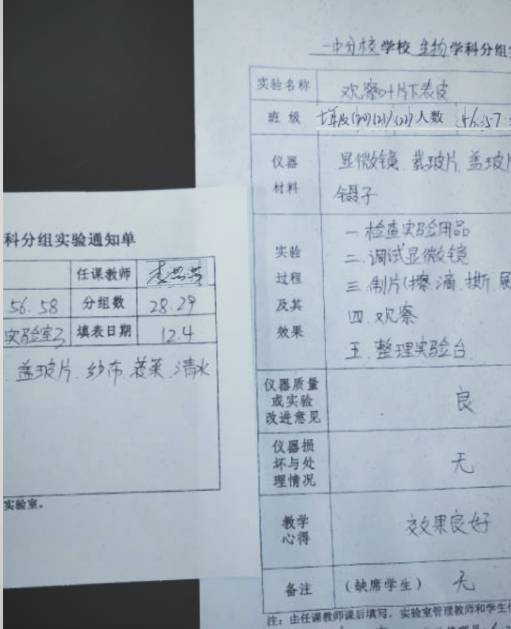 科分组实验通知单
任课教师
56.58 分组数 28.29
实验室 填表日期 12.4
盖玻片 纱布 菠菜 清水
实验室。
一中分校学校 生物学科分组
实验名称 观察叶片下表皮
班级 人数 56.57
仪器材料 显微镜 载玻片 盖玻片
镊子
实验过程及其效果 一 检查实验用品
二 调试显微镜
三 制片(擦 滴 撕 展
四 观察
五 整理实验台
仪器质量或实验改进意见 良
仪器损坏与处理情况 无
教学心得 效果良好
备注 (缺席学生) 无
注:由任课教师课后填写,实验室管理教师和学生